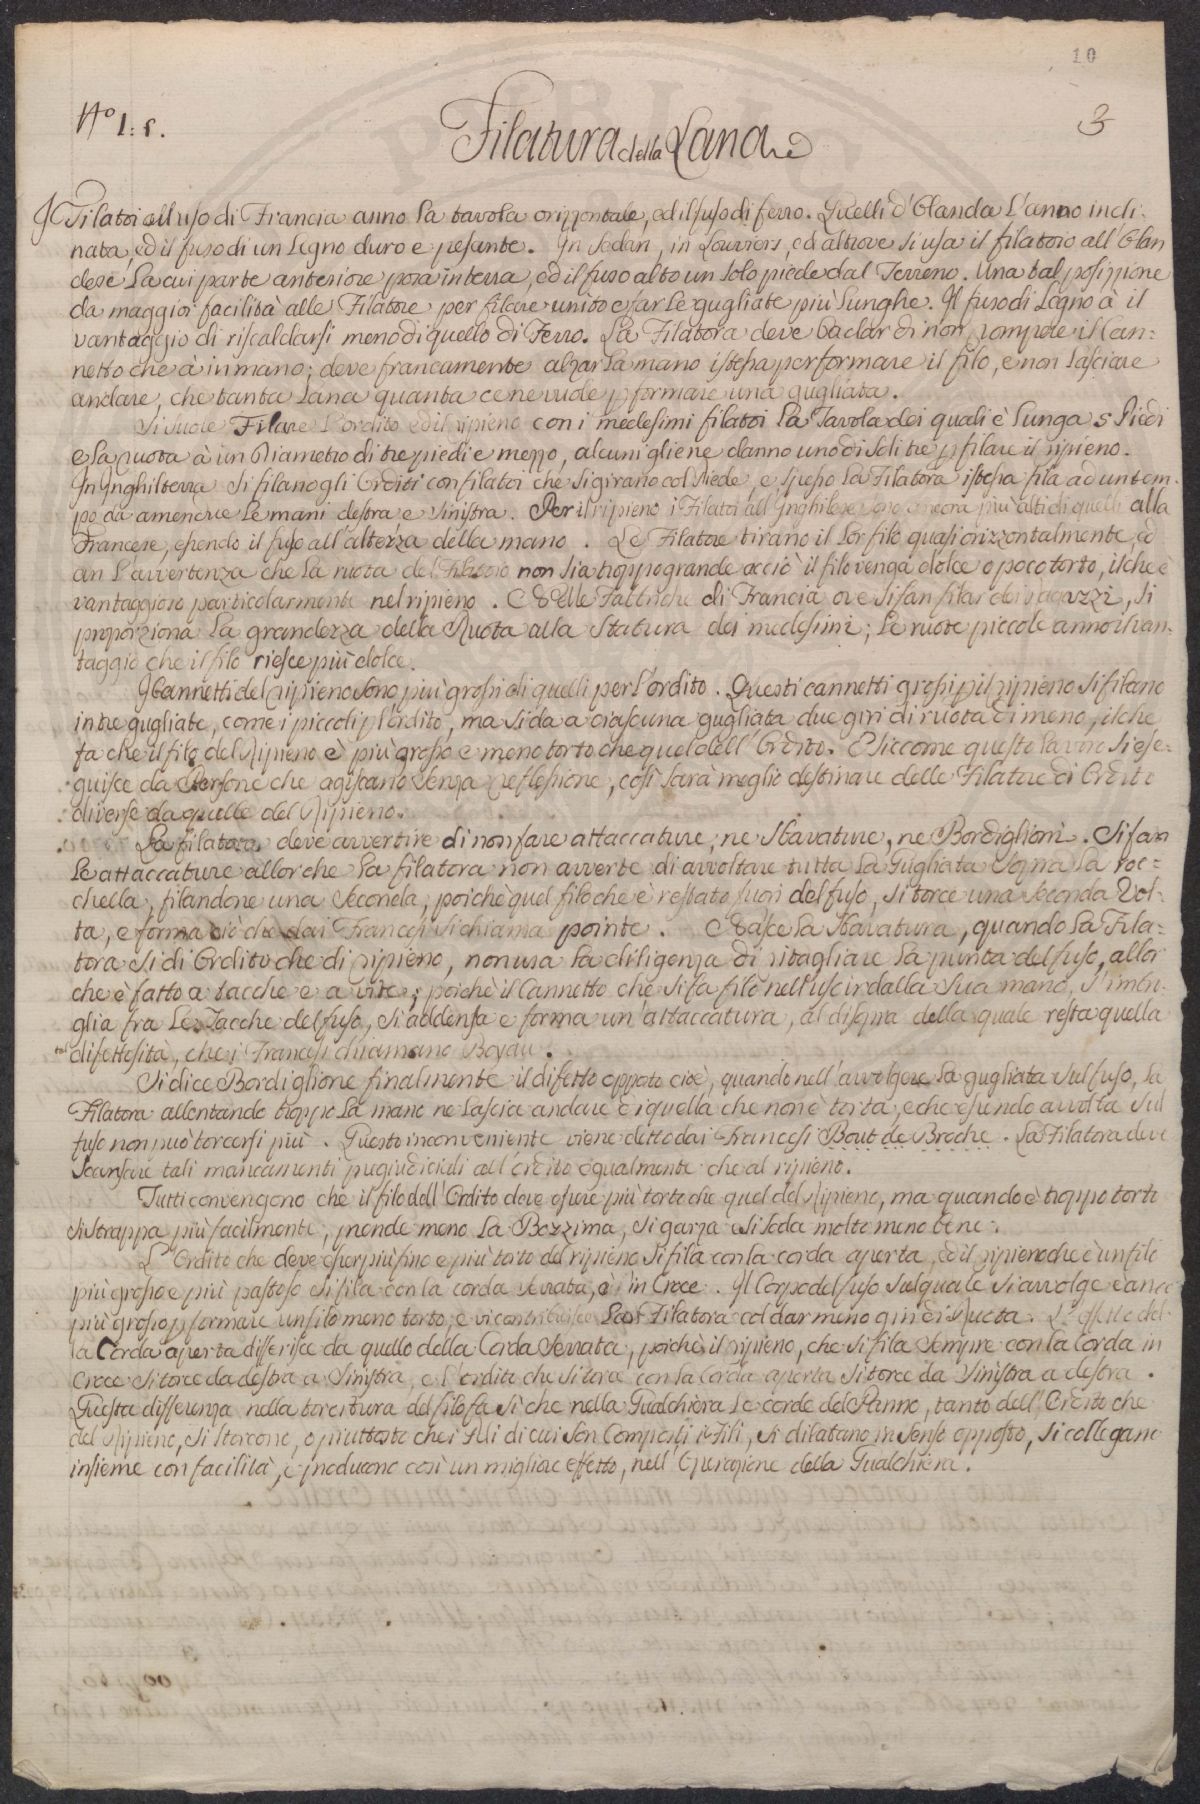 10
Nº 1: 5.
3
Filatura della Lana
I Filatoi all uso di Francia anno la tavola orizzontale, ed il fuso di ferro. Quelli d'Olanda l'anno incli:
nata, ed il fuso di un Legno duro e pesante. In Sedan, in Louviers, ed altrove si usa il filatoio all'Olan
dese la cui parte anteriore posa in terra, ed il fuso alto un solo piede dal Terreno. Una tal posizzione
da maggior facilità alle Filatore per filare unito e far le gugliate più lunghe. Il fuso di Legno à il
vantaggio di riscaldarsi meno di quello di Ferro. La Filatora deve badar di non rompere il Can:
netto che à in mano; deve francamente alzar la mano istessa per formare il filo, e non lasciare
andare, che tanta lana quanta ce ne vuole p formare una gugliata.
Si suole Filare l'ordito ed il ripieno con i medesimi filatoi la Tavola dei quali è lunga 5 Piedi
e la ruota à un Diametro di tre piedi e mezzo, alcuni gliene danno uno di soli tre p filare il ripieno.
In Inghilterra si filano gli Orditi con filatoi che si girano col Piede, e spesso la Filatora istessa fila ad un tem:
po da amendue le mani destra e sinistra. Per il ripieno i Filatoi all'Inghilese sono ancora più alti di quelli alla
Francese, essendo il fuso all'altezza della mano. Le Filatore tirano il lor filo quasi orizzontalmente, ed
an l'avvertenza che la ruota del Filatoio non sia troppo grande acciò il filo venga dolce o poco torto, il che è
vantaggioso particolarmente nel ripieno. Nelle Fabbriche di Francia ove si fan filar dei ragazzi, si
proporziona la grandezza della Ruota alla statura dei medesimi; le ruote piccole anno il van:
taggio che il filo riesce più dolce.
I Cannetti del ripieno sono più grossi di quelli per l'ordito. Questi cannetti grossi p il ripieno si filano
in tre gugliate, come i piccoli p l'ordito, ma si da a ciascuna gugliata due giri di ruota di meno, il che
fa che il filo del Ripieno è più grosso e meno torto che quel dell'Ordito. E siccome questo lavoro si ese:
guisce da Persone che agiscano senza riflessione, così sarà meglio destinare delle Filatore di Ordito
diverse da quelle del Ripieno.
La filatora deve avvertire di non fare attaccature, ne Sbavature, ne Bordiglioni. Si fan
le attaccature allorche la filatora non avverte di avvoltare tutta la Gugliata sopra la roc:
chella, filandone una seconda, poichè quel filo che è restato fuori del fuso, si torce una seconda vol:
ta, e forma ciò che dai Francesi si chiama pointe. Nasce la Sbavatura, quando la Fila:
tora si di Ordito che di ripieno, non usa la diligenza di ritagliare la punta del fuso, allor
che è fatto a tacche e a vite; poichè il Cannetto che si fa filo nell'uscir dalla sua mano, s'imbri:
glia fra le Tacche del fuso, si addensa e forma un'attaccatura, al disopra della quale resta quella
tal difettosità, che i Francesi chiamano Boyau.
Si dice Bordiglione finalmente il difetto opposto cioè, quando nell'avvolgere la gugliata sul fuso, la
Filatora allentando troppo la mano ne lascia andare di quella che non è torta, e che essendo avvolta sul
fuso non può torcersi più. Questo inconveniente viene detto dai Francesi Bout de Broche. La Filatora deve
scansare tali mancamenti pregiudiciali all'ordito egualmente che al ripieno.
Tutti convengono che il filo dell'Ordito deve essere più torto che quel del Ripieno, ma quando è troppo torto
si strappa più facilmente, prende meno la Bozzima, si garza e si soda molto meno bene.
L'Ordito che deve esser più fino e più torto del ripieno si fila con la corda aperta, ed il ripieno che è un filo
più grosso e più pastoso si fila con la corda serrata, o in Croce. Il Corpo del fuso sul quale si avvolge è anco
più grosso p formare un filo meno torto, e vi contribuisce la Filatora col dar meno giri di Ruota. L'effetto del
la Corda aperta differisce da quello della Corda Serrata, poichè il ripieno, che si fila sempre con la Corda in
Croce si torce da destra a sinistra, e l'ordito che si torce con la corda aperta si torce da sinistra a destra.
Questa differenza nella torcitura del filo fa si che nella Gualchiera le corde del Panno, tanto dell'Ordito che
del Ripieno, si storcono, o piuttosto che i Peli di cui son Composti i Fili, si dilatano in senso opposto, si collegano
insieme con facilità, e producono così un migliore effetto, nell'Operazione della Gualchiera.